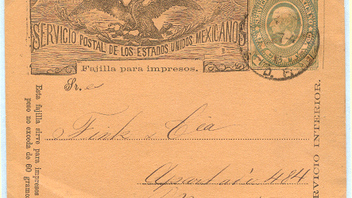 SERVICIO POSTAL DE LOS ESTADOS UNIDOS MEXICANOS
Fajilla para impresos.
Sr.
Fink & Cia
Apartado 484
Esta fajilla sirve para impresos
peso no exceda de 60 gramos
RVICIO INTERIOR.